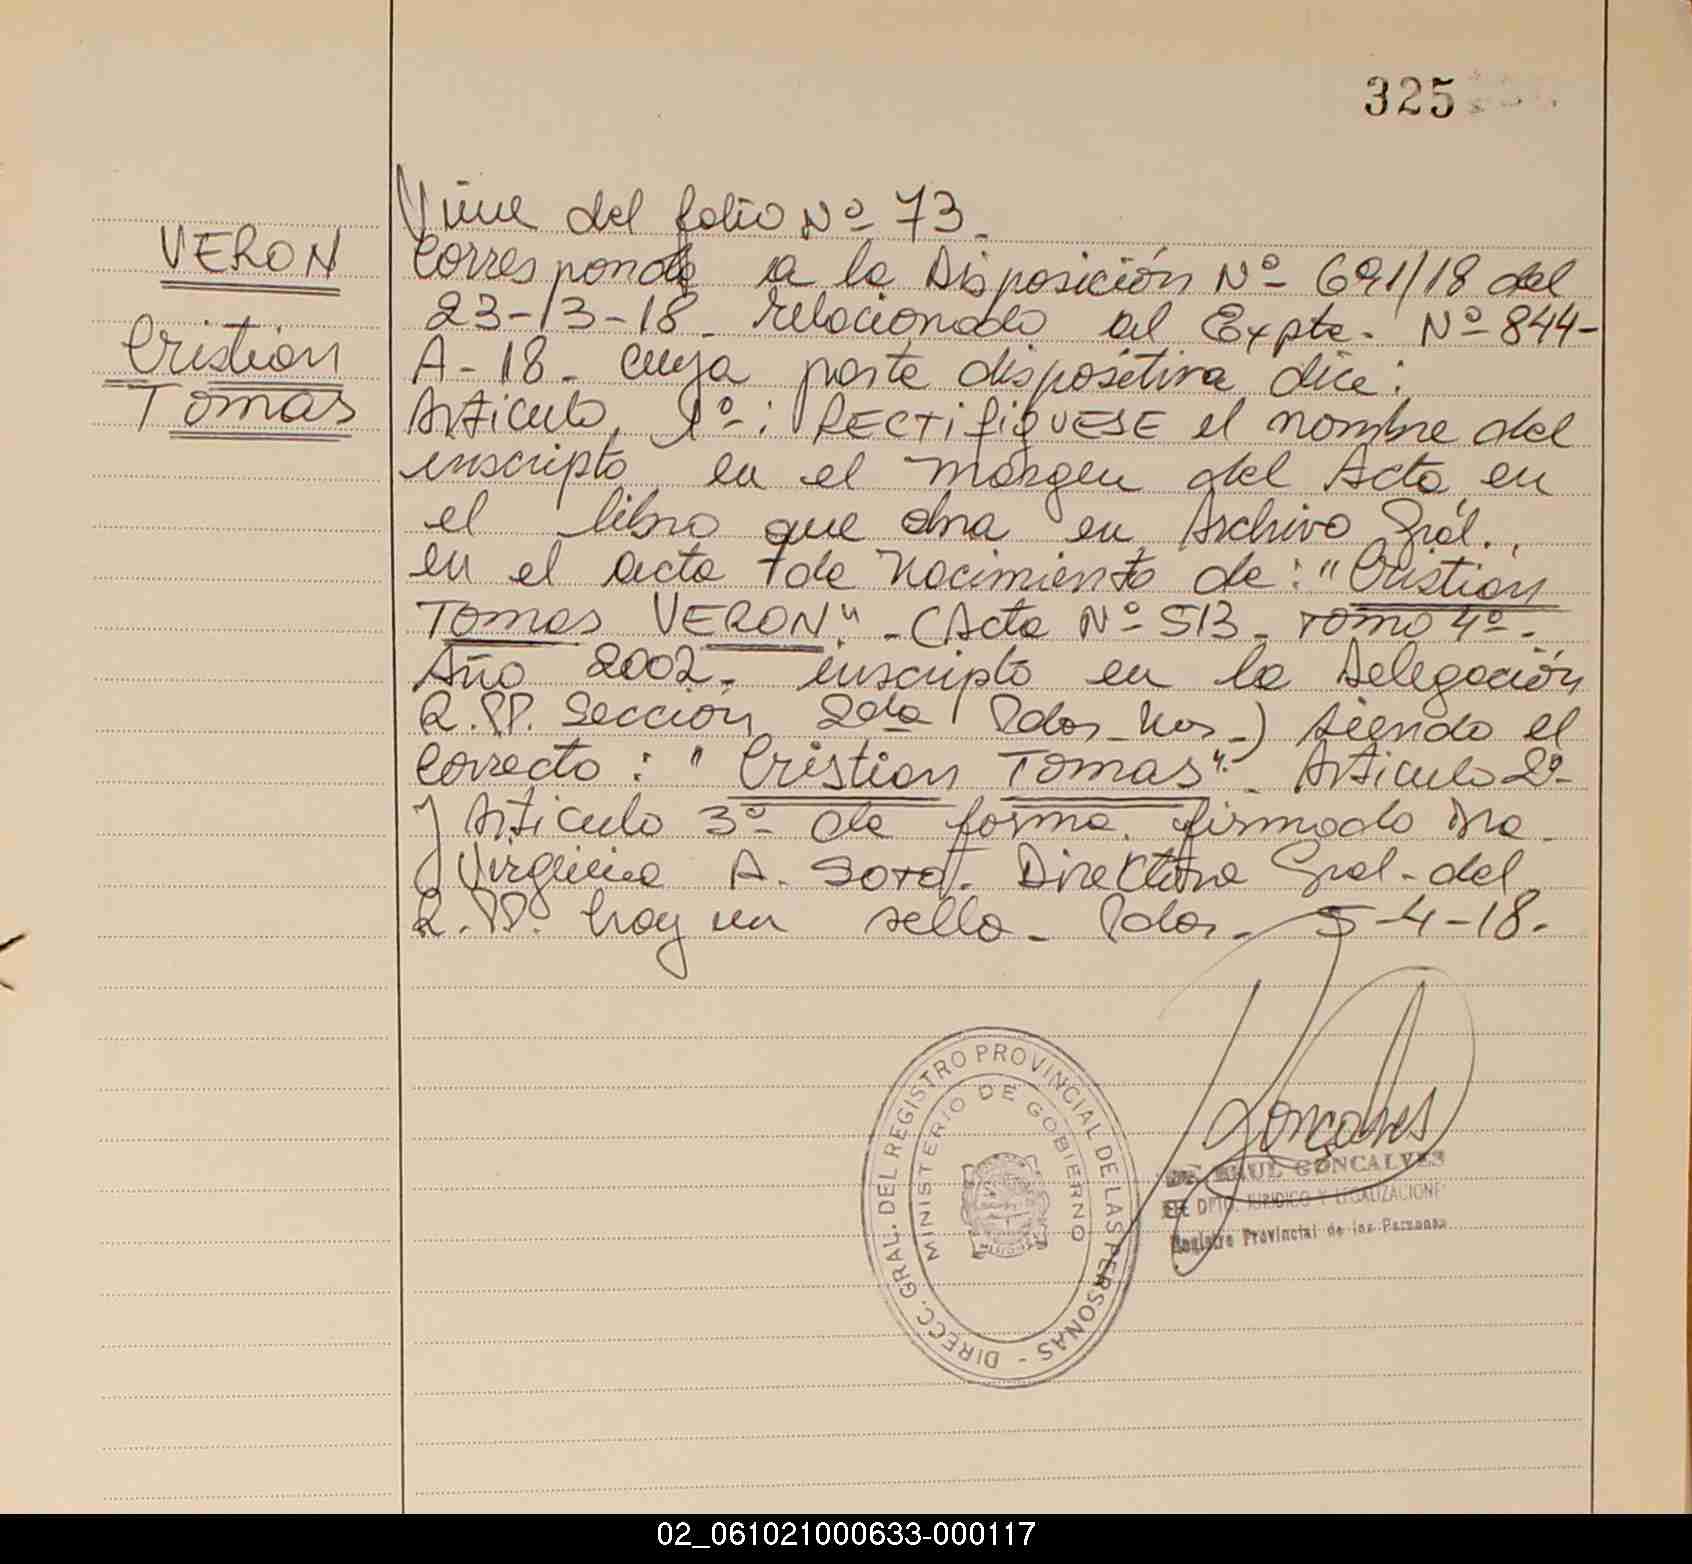 325
VERON
Cristian
Tomas
Viene del folio Nº 73.
Corresponde a la Disposición Nº 691/18 del
23-/3-18. relacionado al Expte. Nº 844-
A-18. cuya parte dispositiva dice:
Articulo 1º: RECTIFIQUESE el nombre del
inscripto en el margen del Acta, en
el libro que obra en Archivo Gral.,
en el acta de Nacimiento de: "Cristian
Tomas VERON". - (Acta Nº 513. Tomo 4º.
Año 2002. inscripto en la Delegación
R.PP. Sección 2da Pdas. Mnes.-) siendo el
correcto: "Cristian Tomas".- Articulo 2º
y Articulo 3º de forma. firmado Dra.
Virginia A. Soto. Directora Gral. del
R.PP. hay un sello. Pdas. 5-4-18.
Goncalves
RAUL GONCALVES
DPTO. JURIDICO Y LEGALIZACIONES
Registro Provincial de las Personas
DIRECC. GRAL. DEL REGISTRO PROVINCIAL DE LAS PERSONAS -
MINISTERIO DE GOBIERNO
MISIONES
02_061021000633-000117